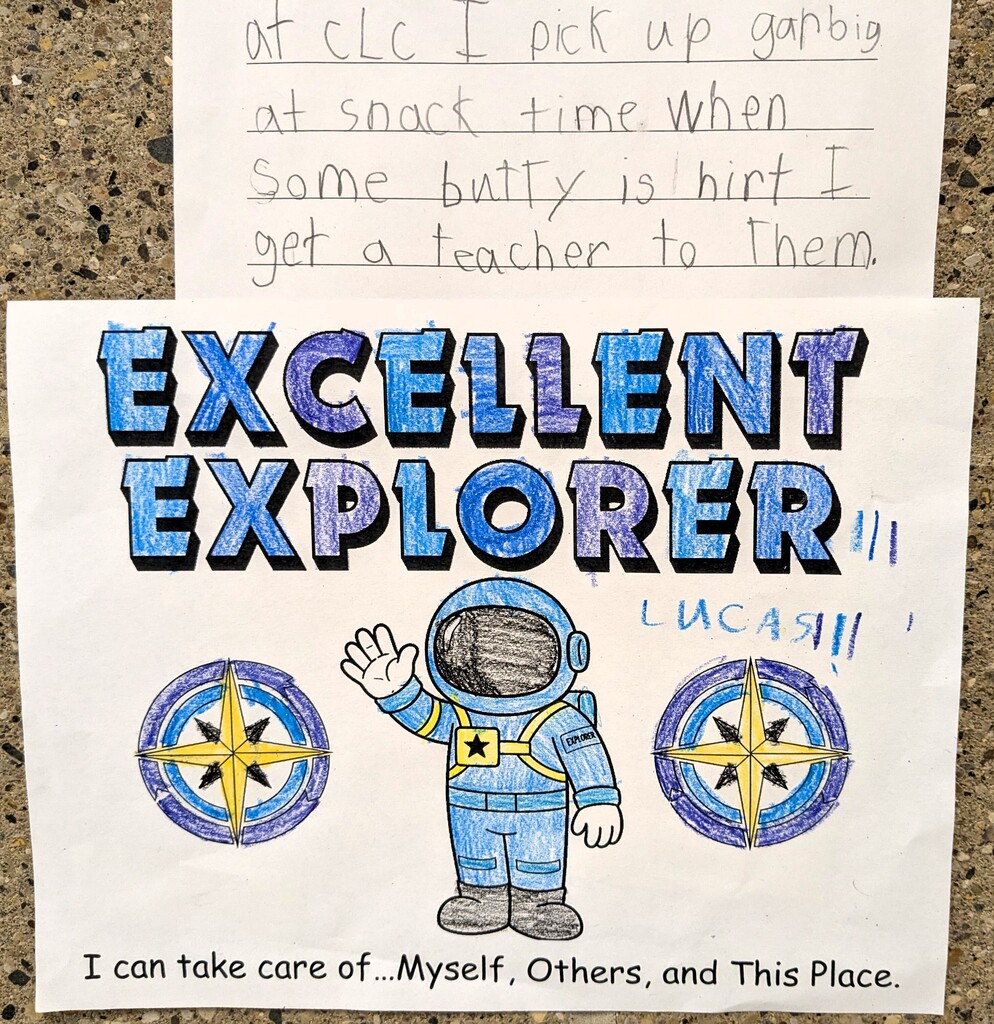 at CLC I pick up garbig
at snack time when
some butty is hirt I
get a teacher to Them.
EXCELLENT
EXPLORER!!!
LUCAS!!!
EXPLORER
I can take care of...Myself, Others, and This Place.